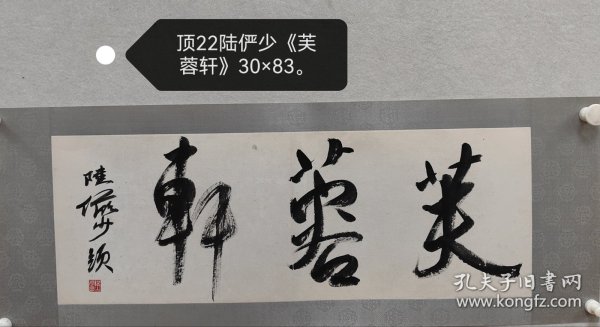 顶22陆俨少《芙
蓉轩》30×83。
芙蓉軒
陸儼少題
孔夫子旧書网
www.kongfz.com